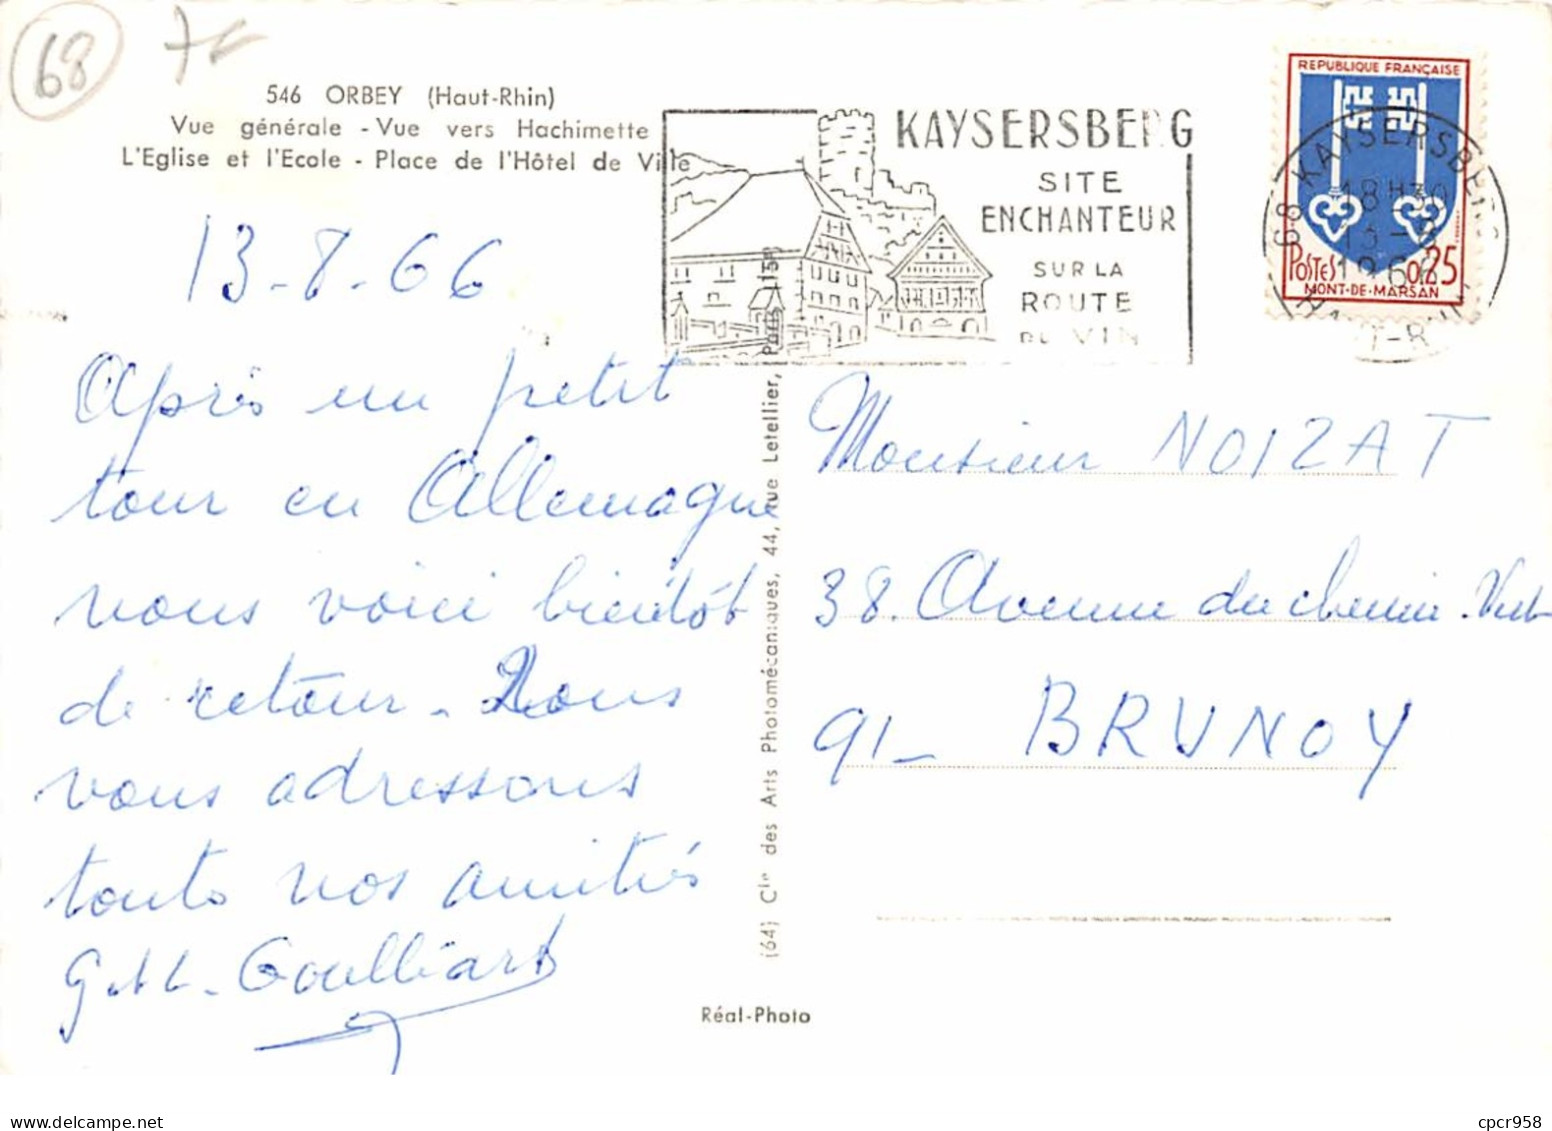 68
546 ORBEY (Haut-Rhin)
Vue générale - Vue vers Hachimette
L'Eglise et l'Ecole - Place de l'Hôtel de Ville
KAYSERSBERG
SITE
ENCHANTEUR
SUR LA
ROUTE
DU VIN
REPUBLIQUE FRANÇAISE
POSTES 0.25
MONT-DE-MARSAN
68 KAYSERSBERG
18H30
13-8
1966
HAUT-RHIN
13-8-66
Après un petit
tour en Allemagne
nous voici bientôt
de retour. Nous
vous adressons
toutes nos amitiés
G. et L. Goulliart
(64) Cie des Arts Photomécaniques, 44, Rue Letellier, Paris (15e)
Réal-Photo
Monsieur NOIZAT
38. Avenue du chemin Vert
91_ BRUNOY
cpcr958